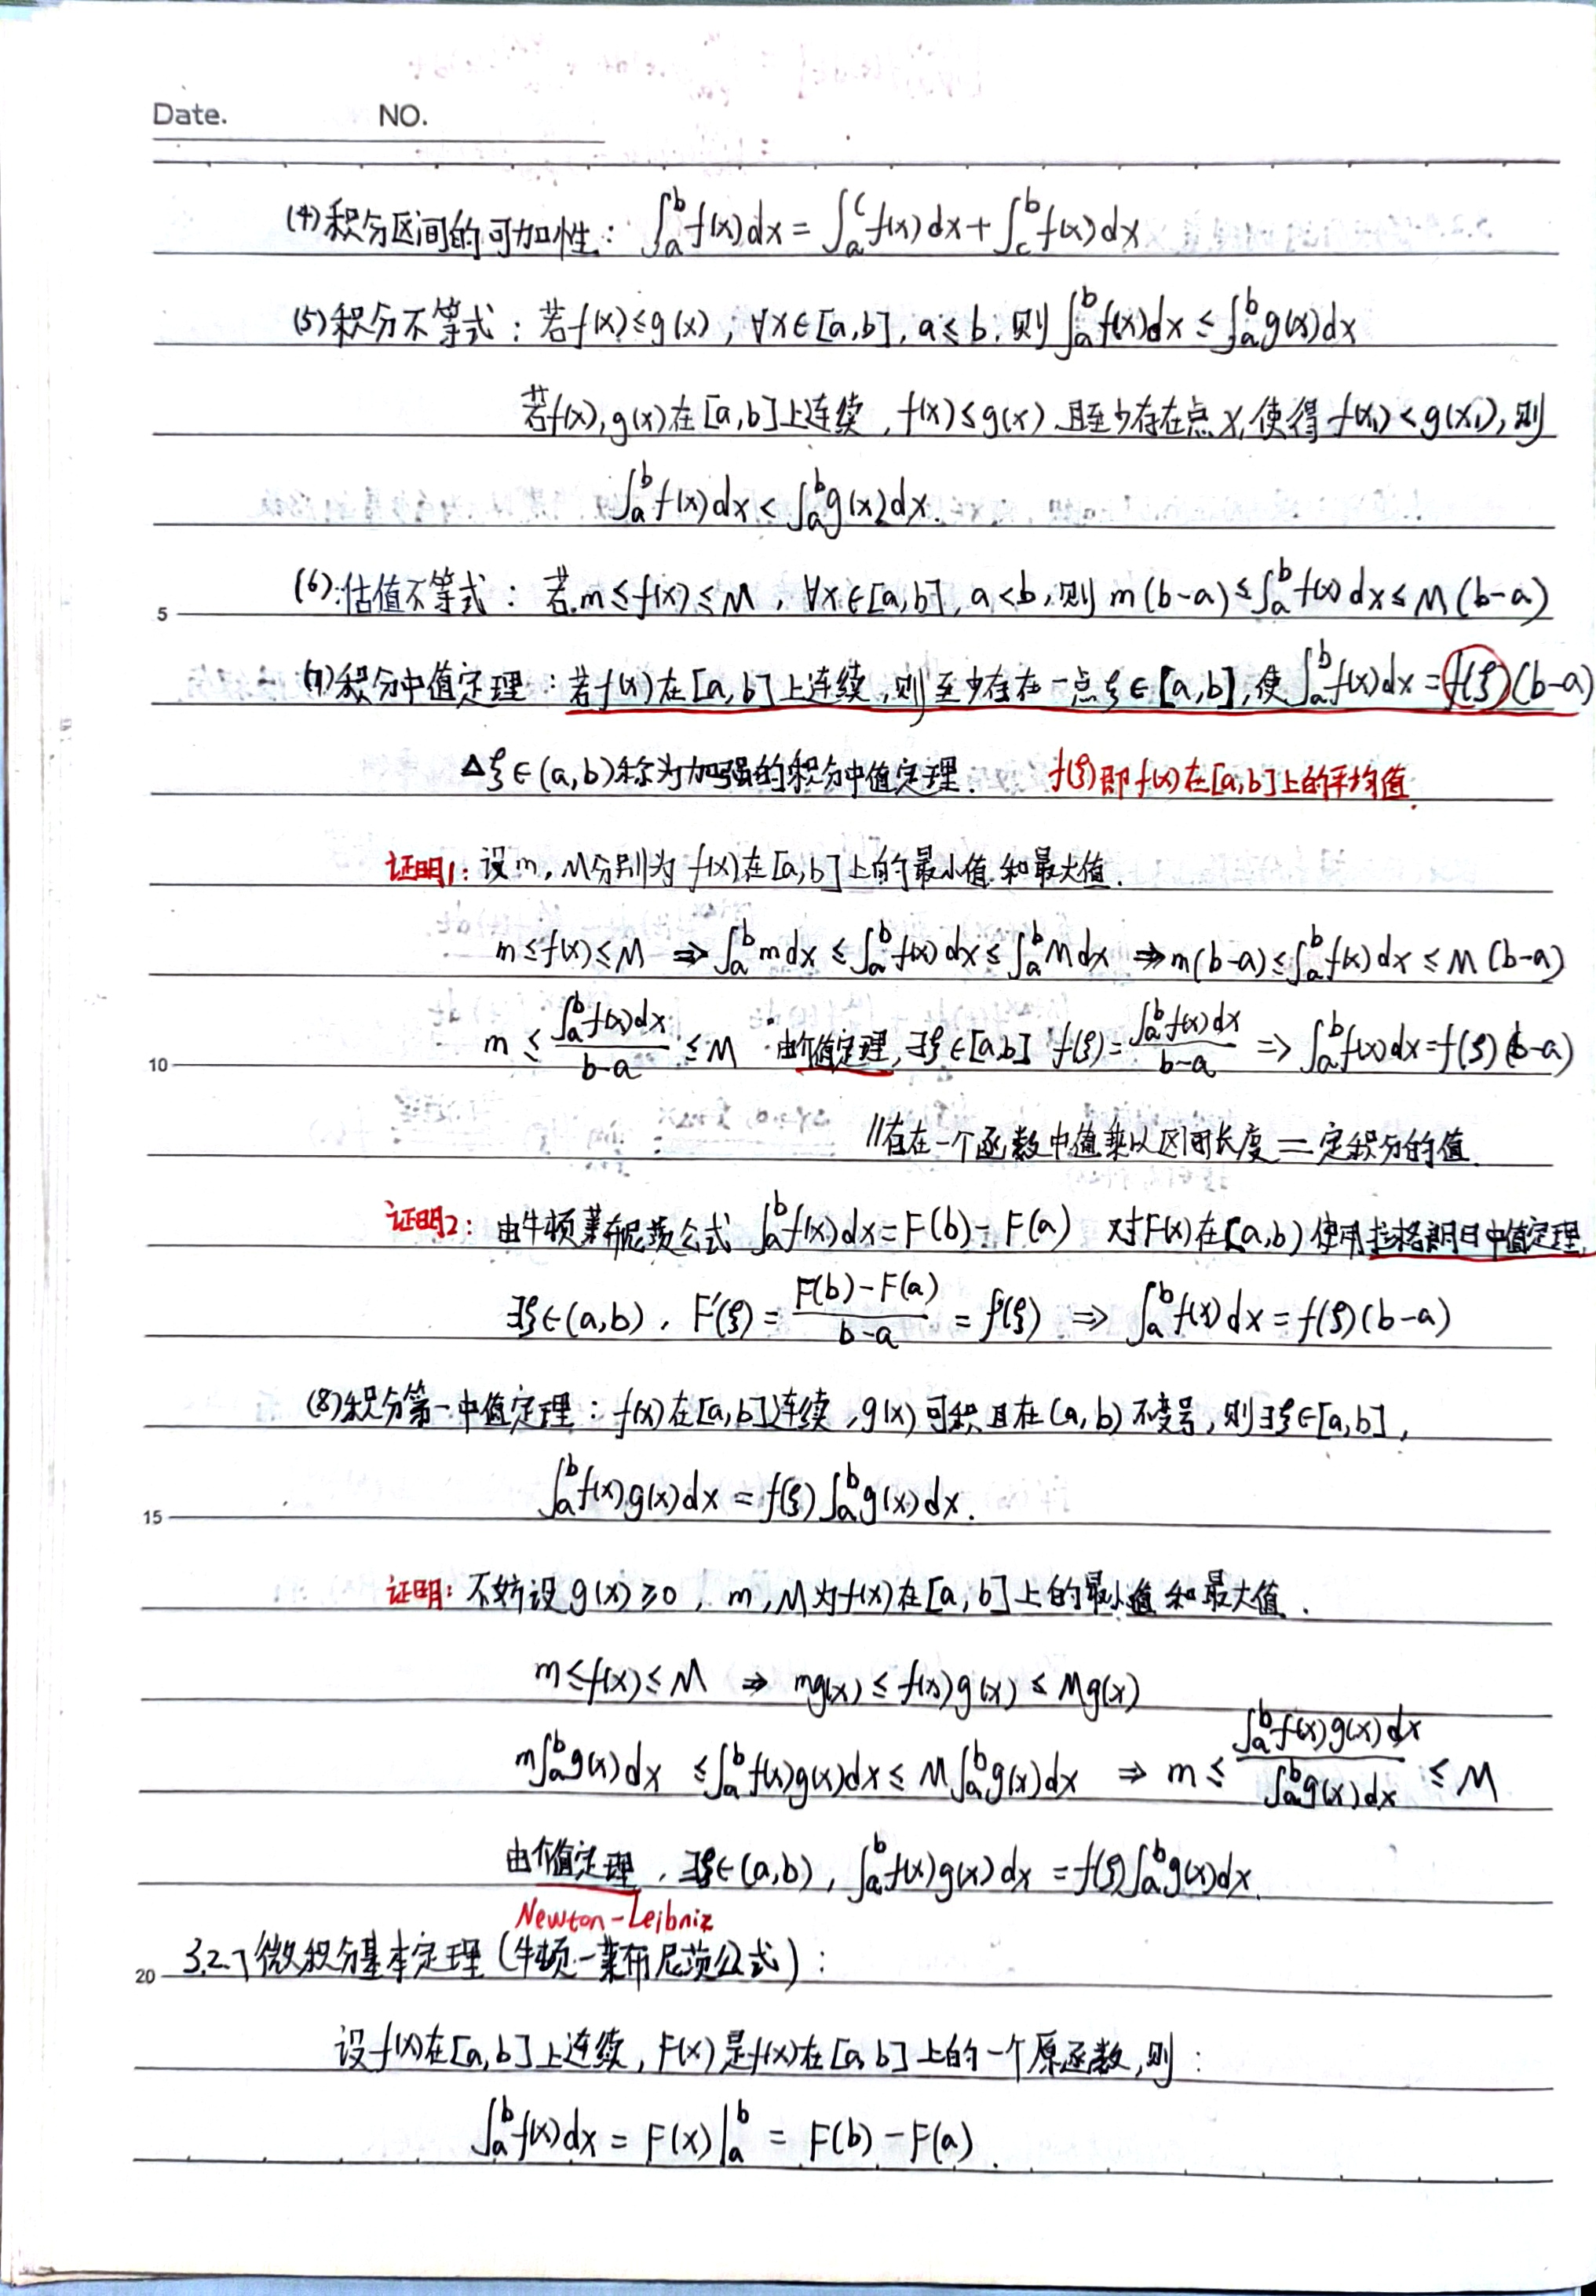 Date. NO.
(4) 积分区间的可加性: ∫_a^b f(x)dx = ∫_a^c f(x)dx + ∫_c^b f(x)dx
(5) 积分不等式: 若f(x)≤g(x), ∀x∈[a,b], a≤b, 则∫_a^b f(x)dx ≤ ∫_a^b g(x)dx
若f(x), g(x)在[a,b]上连续, f(x)≤g(x) 且至少存在点x₁使得 f(x₁)<g(x₁), 则
∫_a^b f(x)dx < ∫_a^b g(x)dx.
5
(6) 估值不等式: 若 m≤f(x)≤M, ∀x∈[a,b], a<b, 则 m(b-a)≤∫_a^b f(x)dx≤M(b-a)
(7) 积分中值定理: 若f(x)在[a,b]上连续, 则至少存在一点ξ∈[a,b], 使∫_a^b f(x)dx = f(ξ)(b-a)
△ξ∈(a,b)称为加强的积分中值定理. f(ξ)即f(x)在[a,b]上的平均值.
证明1: 设m, M分别为 f(x)在[a,b]上的最小值和最大值.
m≤f(x)≤M ⇒ ∫_a^b m dx ≤ ∫_a^b f(x)dx ≤ ∫_a^b M dx ⇒ m(b-a)≤∫_a^b f(x)dx≤M(b-a)
10
m ≤ \frac{∫_a^b f(x)dx}{b-a} ≤ M 由介值定理, ∃ξ∈[a,b] f(ξ)=\frac{∫_a^b f(x)dx}{b-a} ⇒ ∫_a^b f(x)dx=f(ξ)(b-a)
//存在一个函数中值乘以区间长度=定积分的值.
证明2: 由牛顿莱布尼茨公式 ∫_a^b f(x)dx=F(b)-F(a) 对F(x)在(a,b)使用拉格朗日中值定理,
∃ξ∈(a,b), F'(ξ)=\frac{F(b)-F(a)}{b-a}=f(ξ) ⇒ ∫_a^b f(x)dx=f(ξ)(b-a)
(8) 积分第一中值定理: f(x)在[a,b]连续, g(x)可积且在(a,b)不变号, 则∃ξ∈[a,b],
15
∫_a^b f(x)g(x)dx = f(ξ)∫_a^b g(x)dx.
证明: 不妨设g(x)≥0, m, M为f(x)在[a,b]上的最小值和最大值.
m≤f(x)≤M ⇒ mg(x)≤f(x)g(x)≤Mg(x)
m∫_a^b g(x)dx ≤∫_a^b f(x)g(x)dx≤ M∫_a^b g(x)dx ⇒ m≤\frac{∫_a^b f(x)g(x)dx}{∫_a^b g(x)dx}≤M
由介值定理, ∃ξ∈(a,b), ∫_a^b f(x)g(x)dx = f(ξ)∫_a^b g(x)dx.
Newton-Leibniz
20
3.2.7 微积分基本定理(牛顿-莱布尼茨公式):
设f(x)在[a,b]上连续, F(x)是f(x)在[a,b]上的一个原函数, 则:
∫_a^b f(x)dx = F(x)|_a^b = F(b)-F(a).